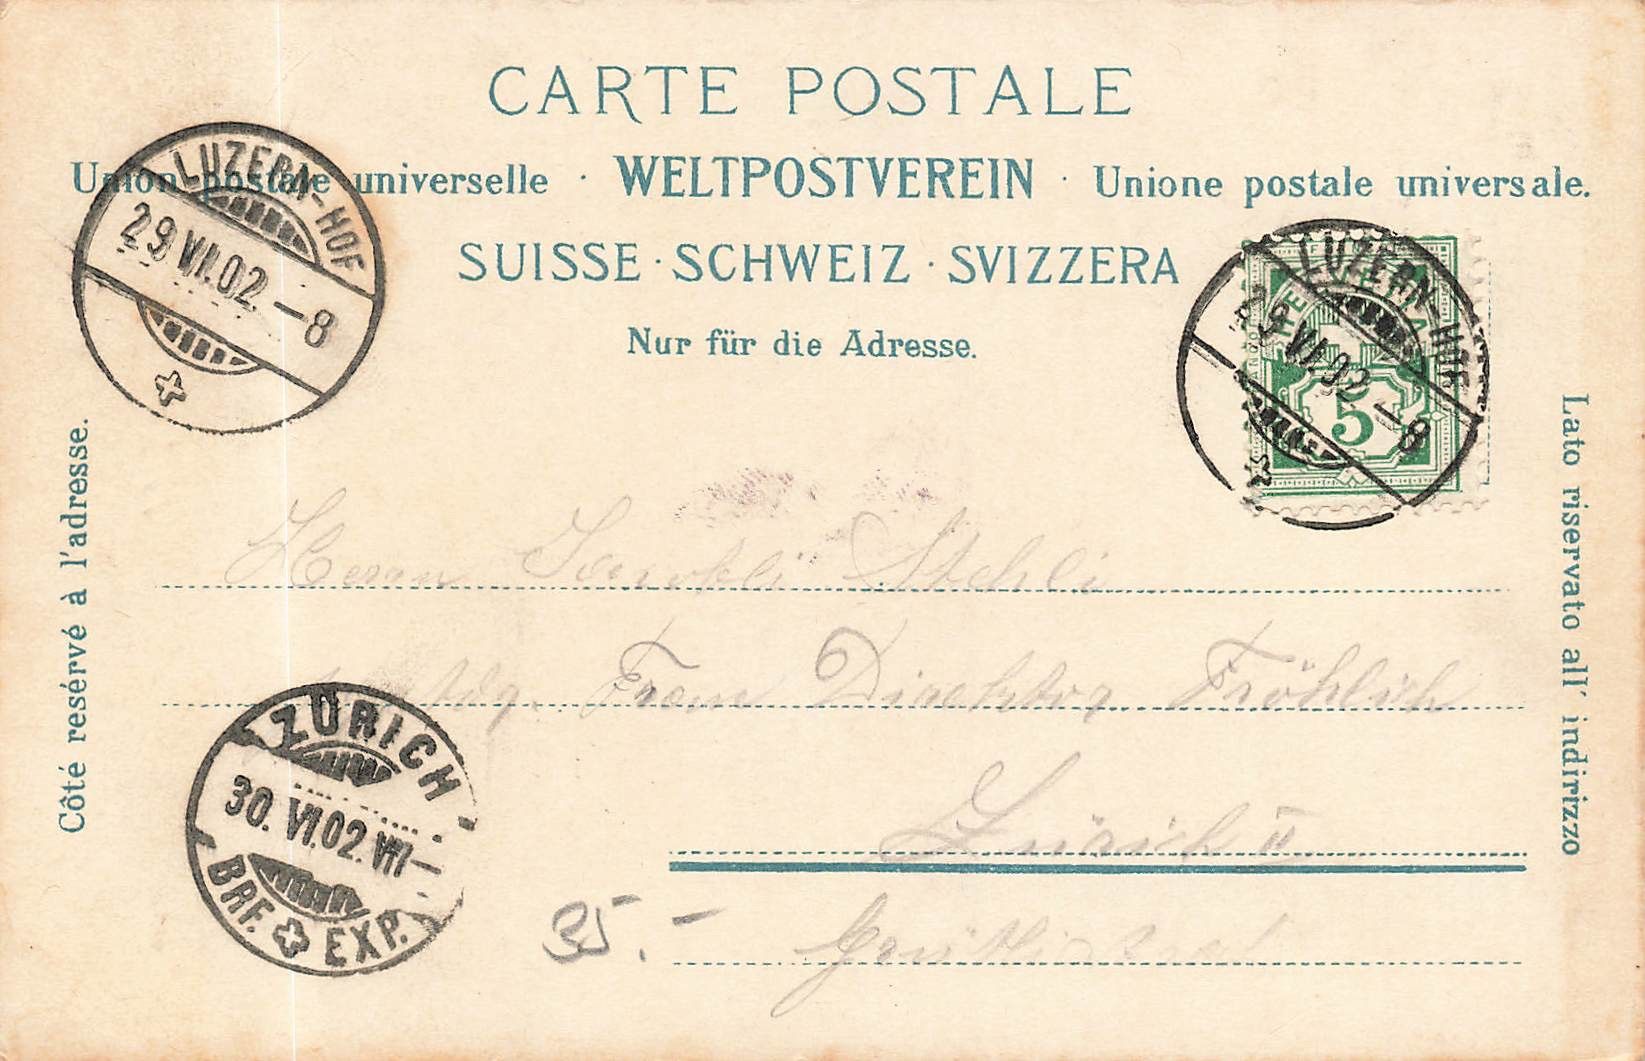 CARTE POSTALE
Union postale universelle · WELTPOSTVEREIN · Unione postale universale.
SUISSE · SCHWEIZ · SVIZZERA
Nur für die Adresse.
LUZERN-HOF
29.VI.02.–8
LUZERN-HOF
29.VI.02.–8
HELVETIA
5
Côté resérvé à l'adresse.
Lato riservato all' indirizzo
Herrn Stehli
Frau Direktor Fröhlich
Zürich II
ZÜRICH
30.VI.02.VII–
BRF. EXP.
35.–